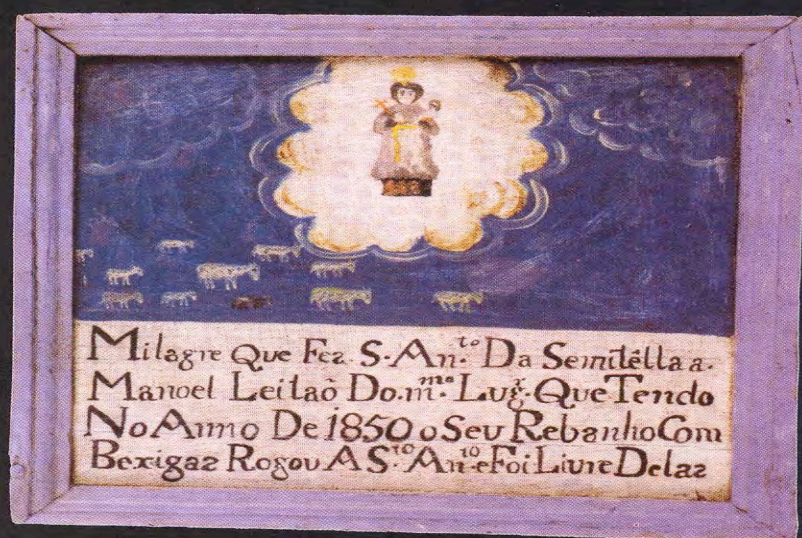 Milagre Que Fez. S. An.to Da Semitélla a.
Manoel Leitaõ Do. m.mo Lug.r Que Tendo
No Anno De 1850 o Seu Rebanho Com
Bexigas Rogou A S.to An.to e Foi Livre Delas